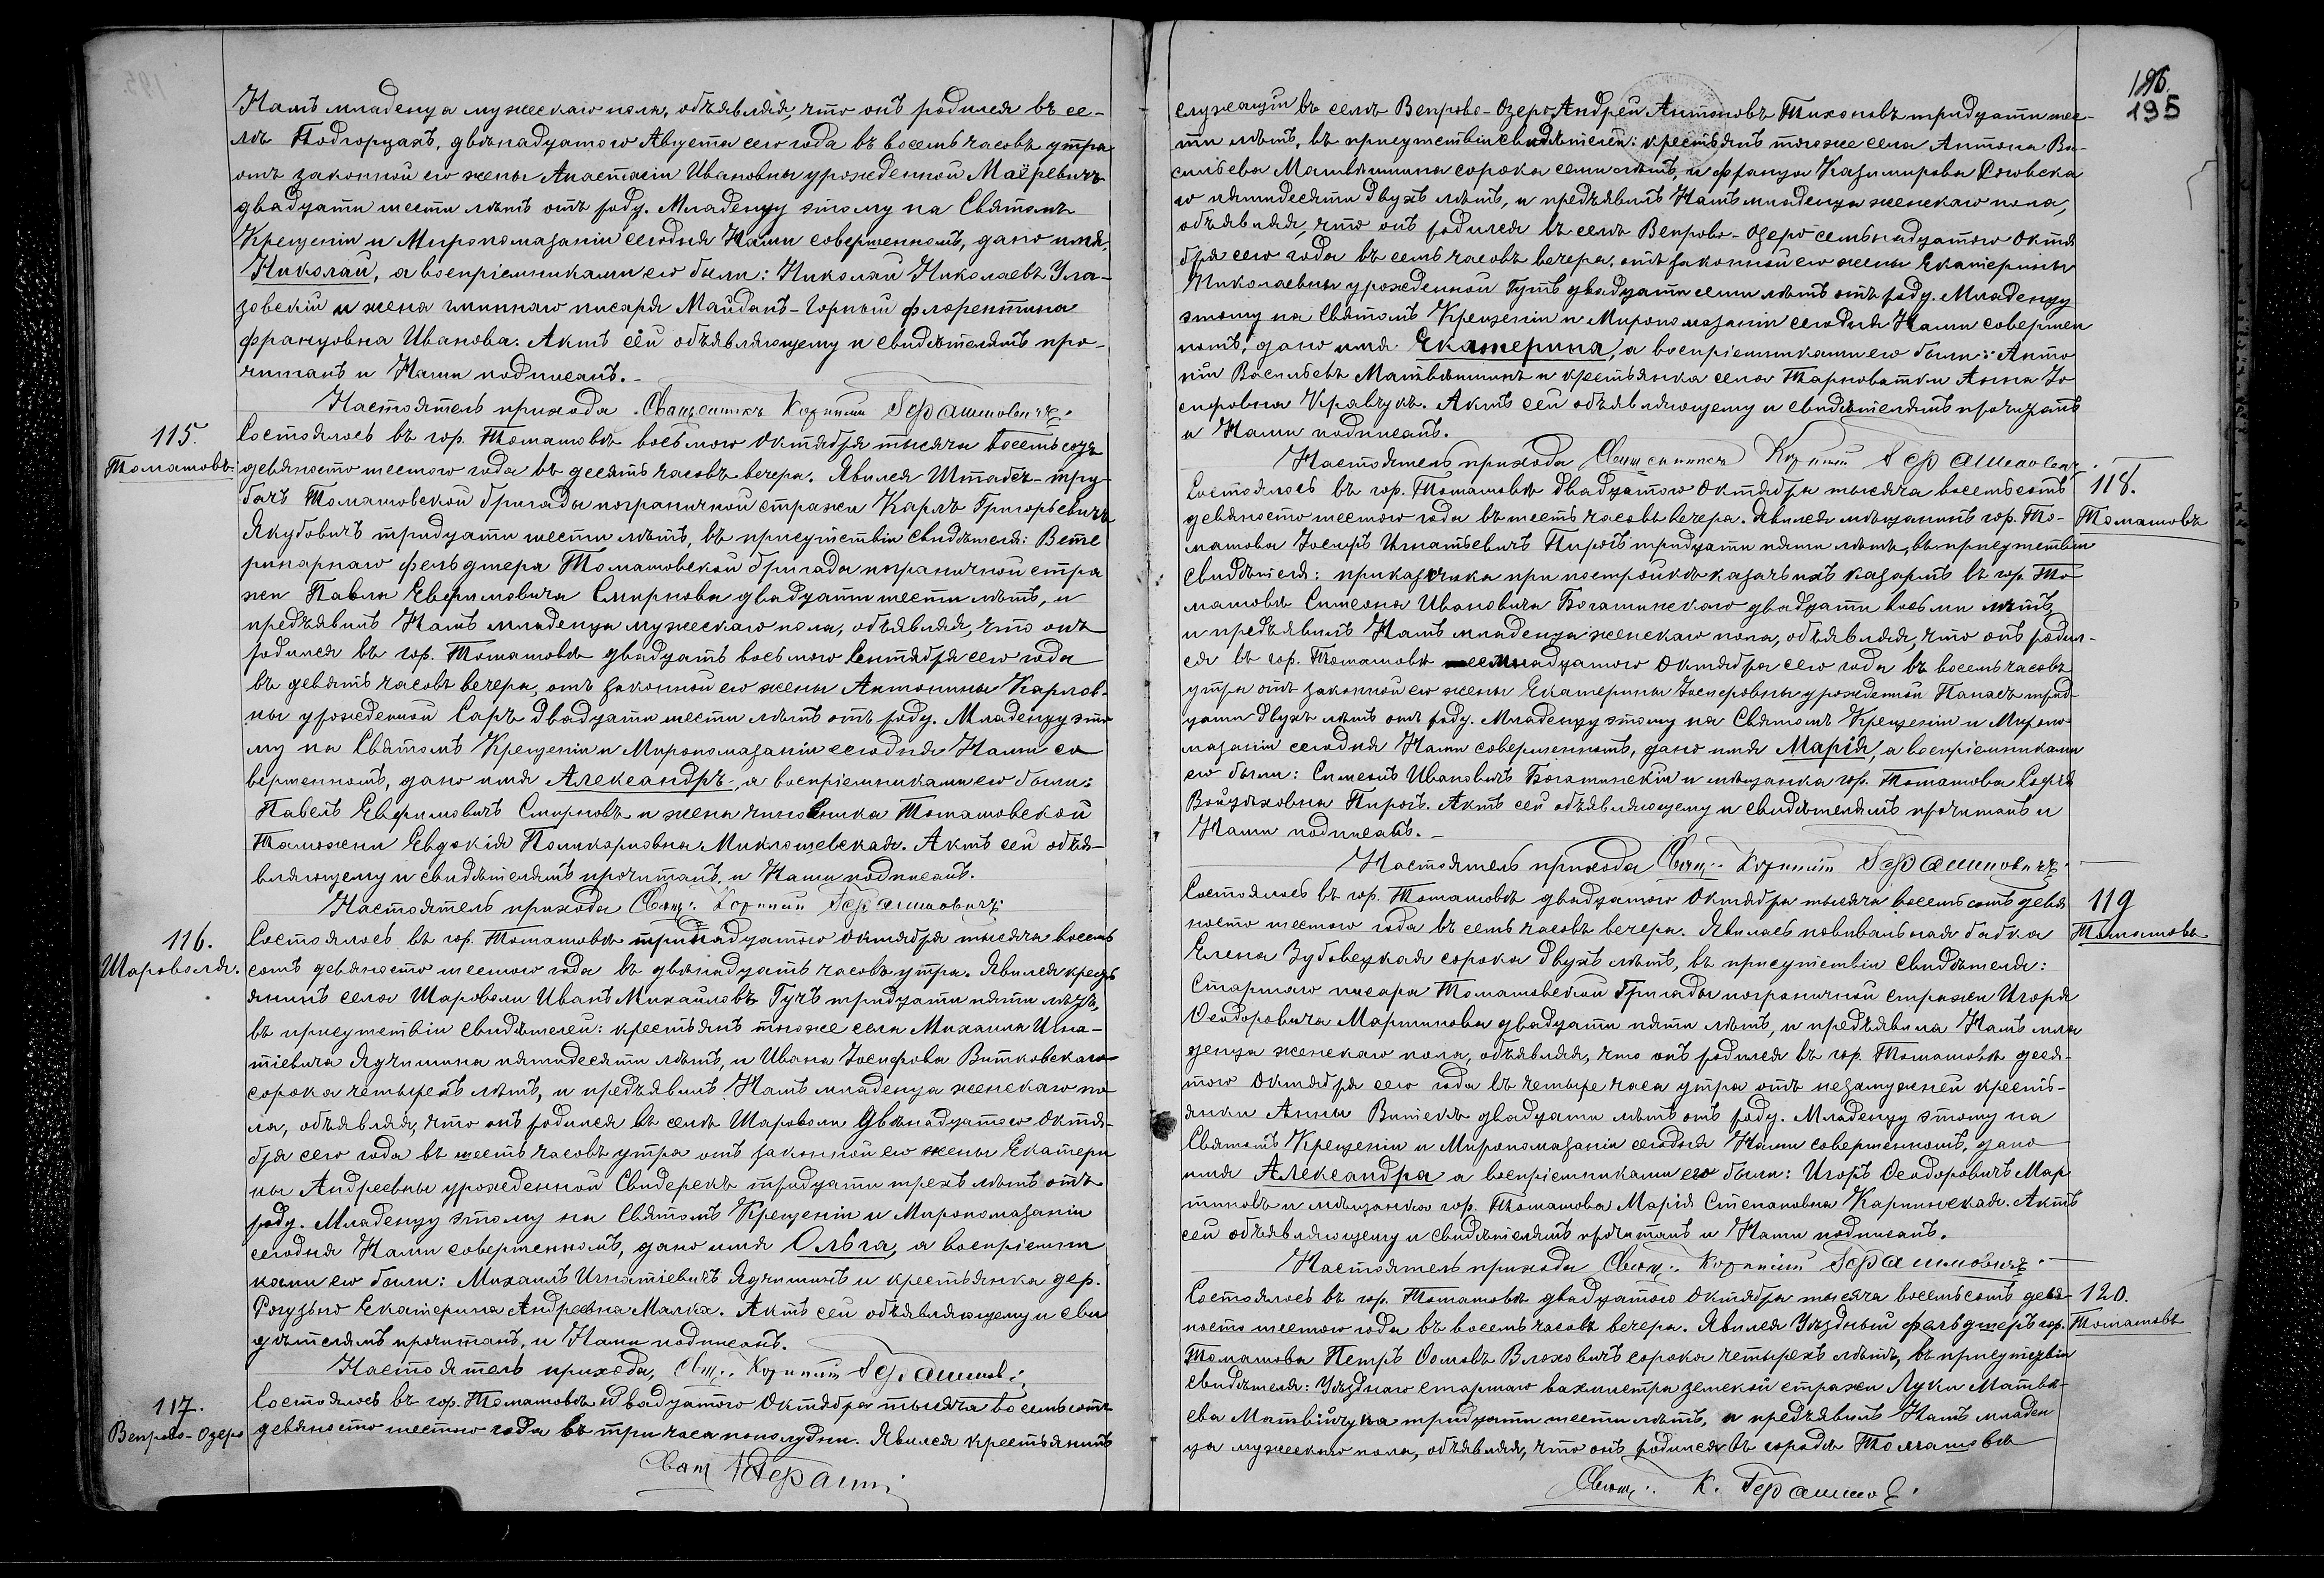 Намъ младенца мужескаго пола, объявляя, что онъ родился въ се-
лѣ Подгорцахъ, двѣнадцатаго Августа сего года въ восемь часовъ утра
отъ законной его жены Анастасіи Ивановны урожденной Маёревичъ
двадцати шести лѣтъ отъ роду. Младенцу этому на Святомъ
Крещеніи и Миропомазаніи сегодня Нами совершенномъ, дано имя
Николай, а воспріемниками его были: Николай Николаевъ Ула-
зовскій и жена гминнаго писаря Майданъ-Горный Флорентина
Францовна Иванова. Актъ сей объявляющему и свидѣтелямъ про-
читанъ и Нами подписанъ.
Настоятель прихода Священникъ Герашиовичъ
115.
Томашовъ.
Состоялось въ гор. Томашовѣ восьмого Октября тысяча восемьсотъ
девяносто шестого года въ десять часовъ вечера. Явился Штабъ-тру-
бачъ Томашовской бригады пограничной стражи Карлъ Григорьевичъ
Якубовичъ тридцати шести лѣтъ, въ присутствіи свидѣтеля: Вете
ринарнаго фельдшера Томашовской бригады пограничной стра
жи Павла Евфимовича Смирнова двадцати шести лѣтъ, и
предъявилъ Намъ младенца мужескаго пола, объявляя, что онъ
родился въ гор. Томашовѣ двадцать восьмого Сентября сего года
въ девять часовъ вечера, отъ законной его жены Антонины Карлов-
ны урожденной Саръ двадцати шести лѣтъ отъ роду. Младенцу это
му на Святомъ Крещеніи и Миропомазаніи сегодня Нами со
вершенномъ, дано имя Александръ, а воспріемниками его были:
Павелъ Евфимовичъ Смирновъ и жена чиновника Томашовской
Таможни Евдокія Поликарповна Миклошевская. Актъ сей объя-
вляющему и свидѣтелямъ прочитанъ, и Нами подписанъ.
Настоятель прихода Свящ. Герашиовичъ
116.
Шароволя.
Состоялось въ гор. Томашовѣ тринадцатого Октября тысяча восемь
сотъ девяносто шестого года въ двѣнадцать часовъ утра. Явился кресть
янинъ села Шароволи Иванъ Михайловъ Гучъ тридцати пяти лѣтъ,
въ присутствіи свидѣтелей: крестьянъ тогоже села Михаила Игна-
тіевича Ядчишина пятидесяти лѣтъ, и Ивана Іосифова Витковскаго
сорока четырехъ лѣтъ, и предъявилъ Намъ младенца женскаго по
ла, объявляя, что онъ родился въ селѣ Шароволи двѣнадцатого Октя-
бря сего года въ шесть часовъ утра отъ законной его жены Екатери
ны Андреевны урожденной Свидерекъ тридцати трехъ лѣтъ отъ
роду. Младенцу этому на Святомъ Крещеніи и Миропомазаніи
сегодня Нами совершенномъ, дано имя Ольга, а воспріемни
ками его были: Михаилъ Игнатіевичъ Ядчишинъ и крестьянка дер.
Рогузьно Екатерина Андреевна Малка. Актъ сей объявляющему и сви
дѣтелямъ прочитанъ, и Нами подписанъ.
Настоятель прихода, Свщ.
117.
Вепрово-Озеро
Состоялось въ гор. Томашовѣ двадцатого Октября тысяча восемьсотъ
девяносто шестого года въ три часа пополудни. Явился крестьянинъ
196.
195
служащій въ селѣ Вепрово-Озеро, Андрей Антоновъ Тихоновъ тридцати шес-
ти лѣтъ, въ присутствіи свидѣтелей: крестьянъ тогоже села Антона Ва-
сильева Матвѣишина сорока семи лѣтъ, и Франца Казимирова
го пятидесяти двухъ лѣтъ, и предъявилъ Намъ младенца женскаго пола,
объявляя, что онъ родился въ селѣ Вепрово-Озеро семьнадцатого Октя
бря сего года въ семь часовъ вечера, отъ законной его жены Екатерины
Николаевны урожденной Гутъ двадцати семи лѣтъ отъ роду. Младенцу
этому на Святомъ Крещеніи и Миропомазаніи сегодня Нами совершен
номъ, дано имя Екатерина, а воспріемниками его были: Анто
ній Васильевъ Матвѣишинъ и крестьянка села Тарноватки Анна Іо
сифовна Кравчукъ. Актъ сей объявляющему и свидѣтелямъ прочитанъ
и Нами подписанъ.
Настоятель прихода Священникъ Герашиовичъ
118.
Томашовъ
Состоялось въ гор. Томашовѣ двадцатого Октября тысяча восемьсотъ
девяносто шестого года въ шесть часовъ вечера. Явился мѣщанинъ гор. То-
машова Іосифъ Игнатьевичъ Пирогъ тридцати пяти лѣтъ, въ присутствіи
свидѣтеля: приказчика при постройкѣ казачьихъ казармъ въ гор. То
машовѣ Симеона Ивановича Богатинскаго двадцати восьми лѣтъ,
и предъявилъ Намъ младенца женскаго пола, объявляя, что онъ родил-
ся въ гор. Томашовѣ семнадцатого Октября сего года въ восемь часовъ
утра отъ законной его жены Екатерины Іосифовны урожденной Панасъ трид-
цати двухъ лѣтъ отъ роду. Младенцу этому на Святомъ Крещеніи и Миропо
мазаніи сегодня Нами совершенномъ, дано имя Марія, а воспріемниками
его были: Симеонъ Ивановичъ Богатинскій и мѣщанка гор. Томашова Софія
Войцѣховна Пирогъ. Актъ сей объявляющему и свидѣтелямъ прочитанъ и
Нами подписанъ.
Настоятель прихода Свящ. Герашиовичъ
119
Томашовъ
Состоялось въ гор. Томашовѣ двадцатого Октября тысяча восемьсотъ девя
носто шестого года въ семь часовъ вечера. Явилась повивальная бабка
Елена Зубовецкая сорока двухъ лѣтъ, въ присутствіи свидѣтеля:
Старшаго писаря Томашовской бригады пограничной стражи Игоря
Ѳеодоровича Мартинова двадцати пяти лѣтъ, и предъявила Намъ мла
денца женскаго пола, объявляя, что онъ родился въ гор. Томашовѣ деся-
того Октября сего года въ четыре часа утра отъ незамужней кресть-
янки Анны Витекъ двадцати лѣтъ отъ роду. Младенцу этому на
Святомъ Крещеніи и Миропомазаніи сегодня Нами совершенномъ, дано
имя Александра а воспріемниками его были: Игорь Ѳеодоровичъ Мар
тиновъ и мѣщанка гор. Томашова Марія Степановна Карпинская. Актъ
сей объявляющему и свидѣтелямъ прочитанъ и Нами подписанъ.
Настоятель прихода Свящ. Герашиовичъ
120.
Томашовъ
Состоялось въ гор. Томашовѣ двадцатого Октября тысяча восемьсотъ девя-
носто шестого года въ восемь часовъ вечера. Явился Уѣздный фельдшеръ гор.
Томашова Петръ Ѳомовъ Влоховичъ сорока четырехъ лѣтъ, въ присутствіи
свидѣтеля: Уѣзднаго старшаго вахмистра земской стражи Луки Матвѣ-
ева Матвійчука тридцати шести лѣтъ, и предъявилъ Намъ младен
ца мужескаго пола, объявляя, что онъ родился въ городѣ Томашовѣ
Свящ. К.